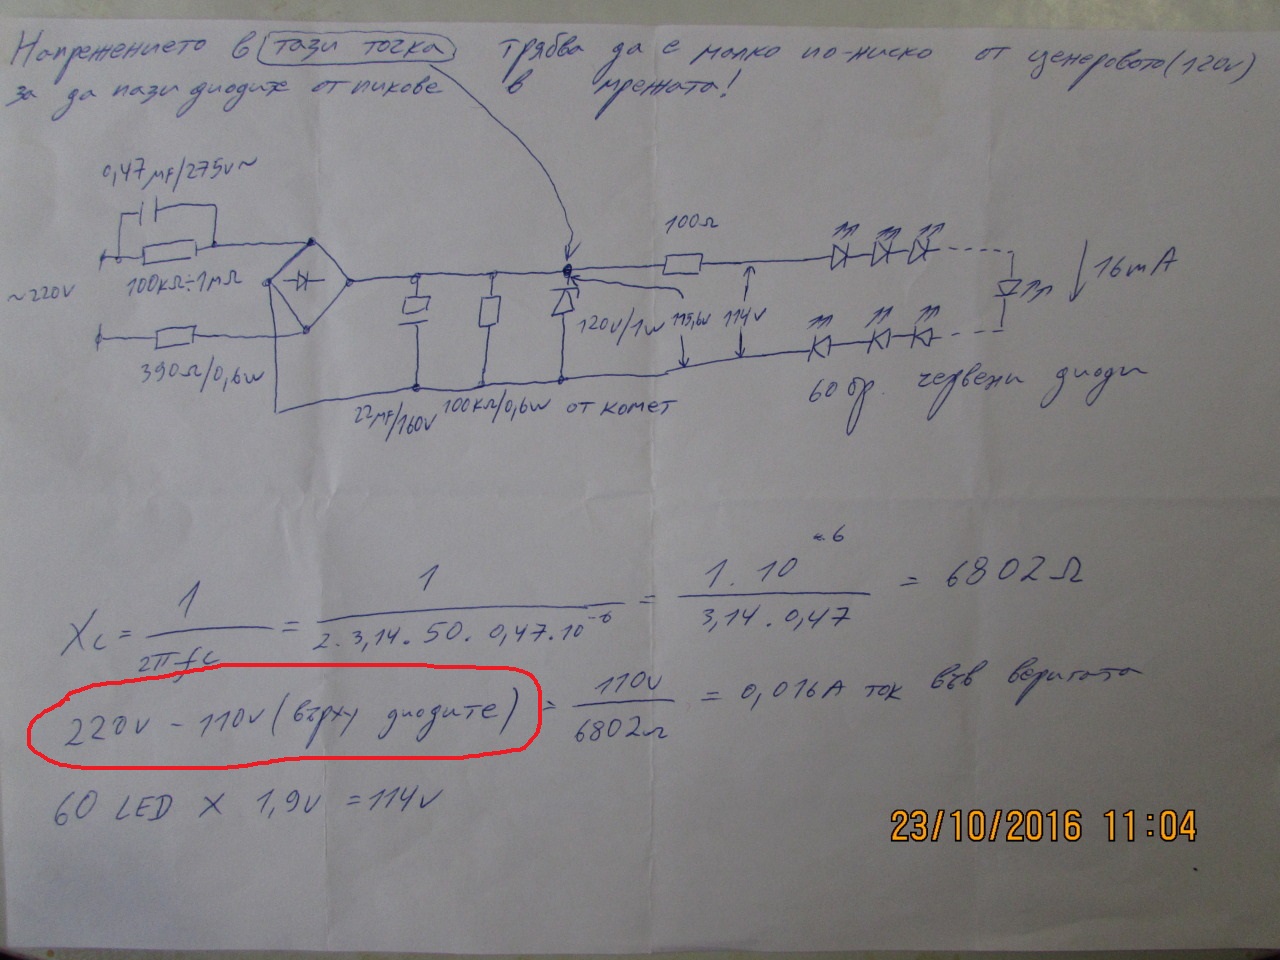 Напрежението в тази точка трябва да е малко по-ниско от ценеровото (120v)
за да пази диодите от пикове в мрежата!
0,47μF/275v~
100Ω
~220v
100kΩ÷1MΩ
16mA
120v/1w
115,6v
114v
390Ω/0,6w
22μF/160v
100kΩ/0,6w
от комет
60 бр. червени диоди
Xc = 1/2πfc = 1/2.3,14.50.0,47.10⁻⁶ = 1.10⁶/3,14.0,47 = 6802Ω
220v - 110v (върху диодите) = 110v/6802Ω = 0,016A ток във веригата
60 LED X 1,9v = 114v
23/10/2016 11:04